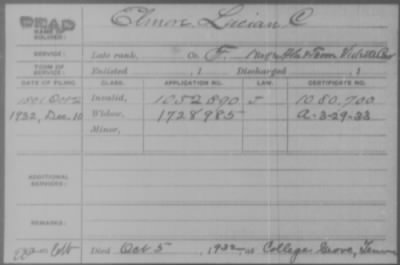 DEAD
NAME OF SOLDIER:
Elmore, Lucian C
SERVICE: Late rank, Co. F,
TERM OF SERVICE: Enlisted , 1 Discharged , 1
DATE OF FILING. CLASS. APPLICATION NO. LAW. CERTIFICATE NO.
1891 Oct 2 Invalid, 1052890 1080.700
1932, Dec. 10 Widow, 1728985 A-3-29-33
Minor,
ADDITIONAL SERVICES:
REMARKS:
Died Oct 5, 1932, at College Grove, Tenn